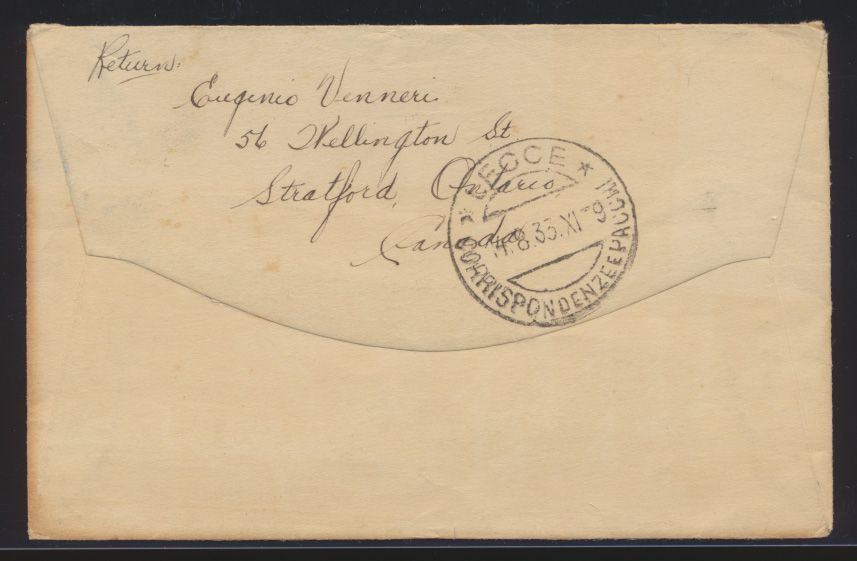 Return:
Eugenio Venneri
56 Wellington St.
Stratford, Ontario
Canada
* LECCE *
.8.33.XI-9
CORRISPONDENZE E PACCHI